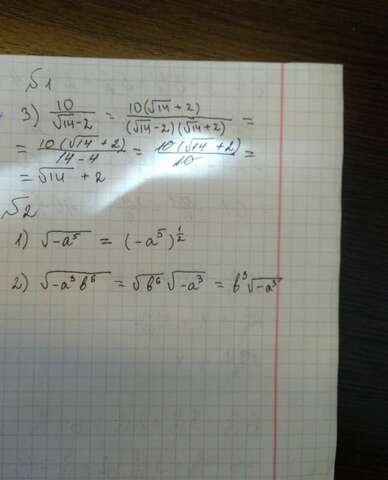 №1
3) 10/(√14-2) = 10(√14+2)/((√14-2)(√14+2)) =
= 10(√14+2)/(14-4) = 10(√14+2)/10 =
= √14 + 2
№2
1) √(-a⁵) = (-a⁵)^(1/2)
2) √(-a³b⁶) = √(b⁶) √(-a³) = b³√(-a³)